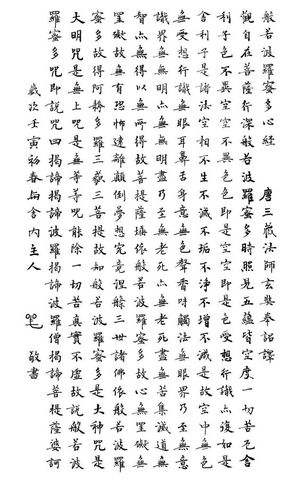 般若波羅蜜多心經 唐三藏法師玄奘奉詔譯
觀自在菩薩行深般若波羅蜜多時照見五蘊皆空度一切苦厄舍
利子色不異空空不異色色即是空空即是色受想行識亦復如是
舍利子是諸法空相不生不滅不垢不淨不增不減是故空中無色
無受想行識無眼耳鼻舌身意無色聲香味觸法無眼界乃至無意
識界無無明亦無無明盡乃至無老死亦無老死盡無苦集滅道無
智亦無得以無所得故菩提薩埵依般若波羅蜜多故心無罣礙無
罣礙故無有恐怖遠離顛倒夢想究竟涅槃三世諸佛依般若波羅
蜜多故得阿耨多羅三藐三菩提故知般若波羅蜜多是大神咒是
大明咒是無上咒是無等等咒能除一切苦真實不虛故說般若波
羅蜜多咒即說咒曰揭諦揭諦波羅揭諦波羅僧揭諦菩提薩婆訶
歲次壬寅初春 舍内主人 敬書